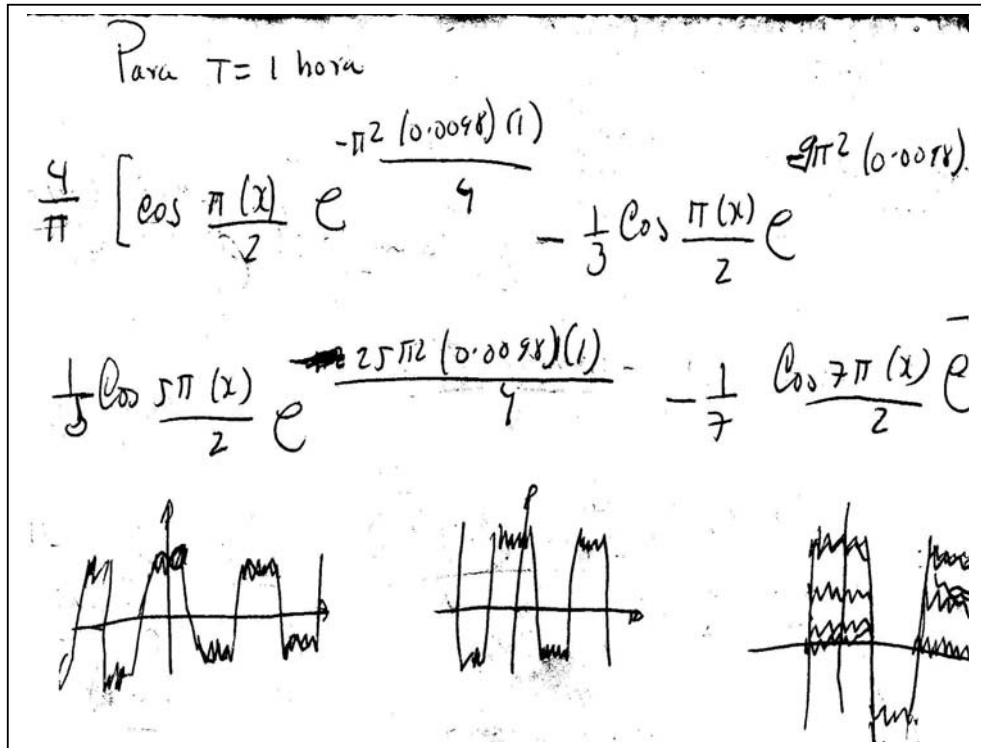 Para T = 1 hora
4/π [cos π(x)/2 e^(-π2 (0.0098)(1)/4) - 1/3 Cos π(x)/2 e^(-9π2 (0.0098)
1/5 Cos 5π(x)/2 e^(25π2 (0.0098)(1)/4) - 1/7 Cos 7π(x)/2 e^-